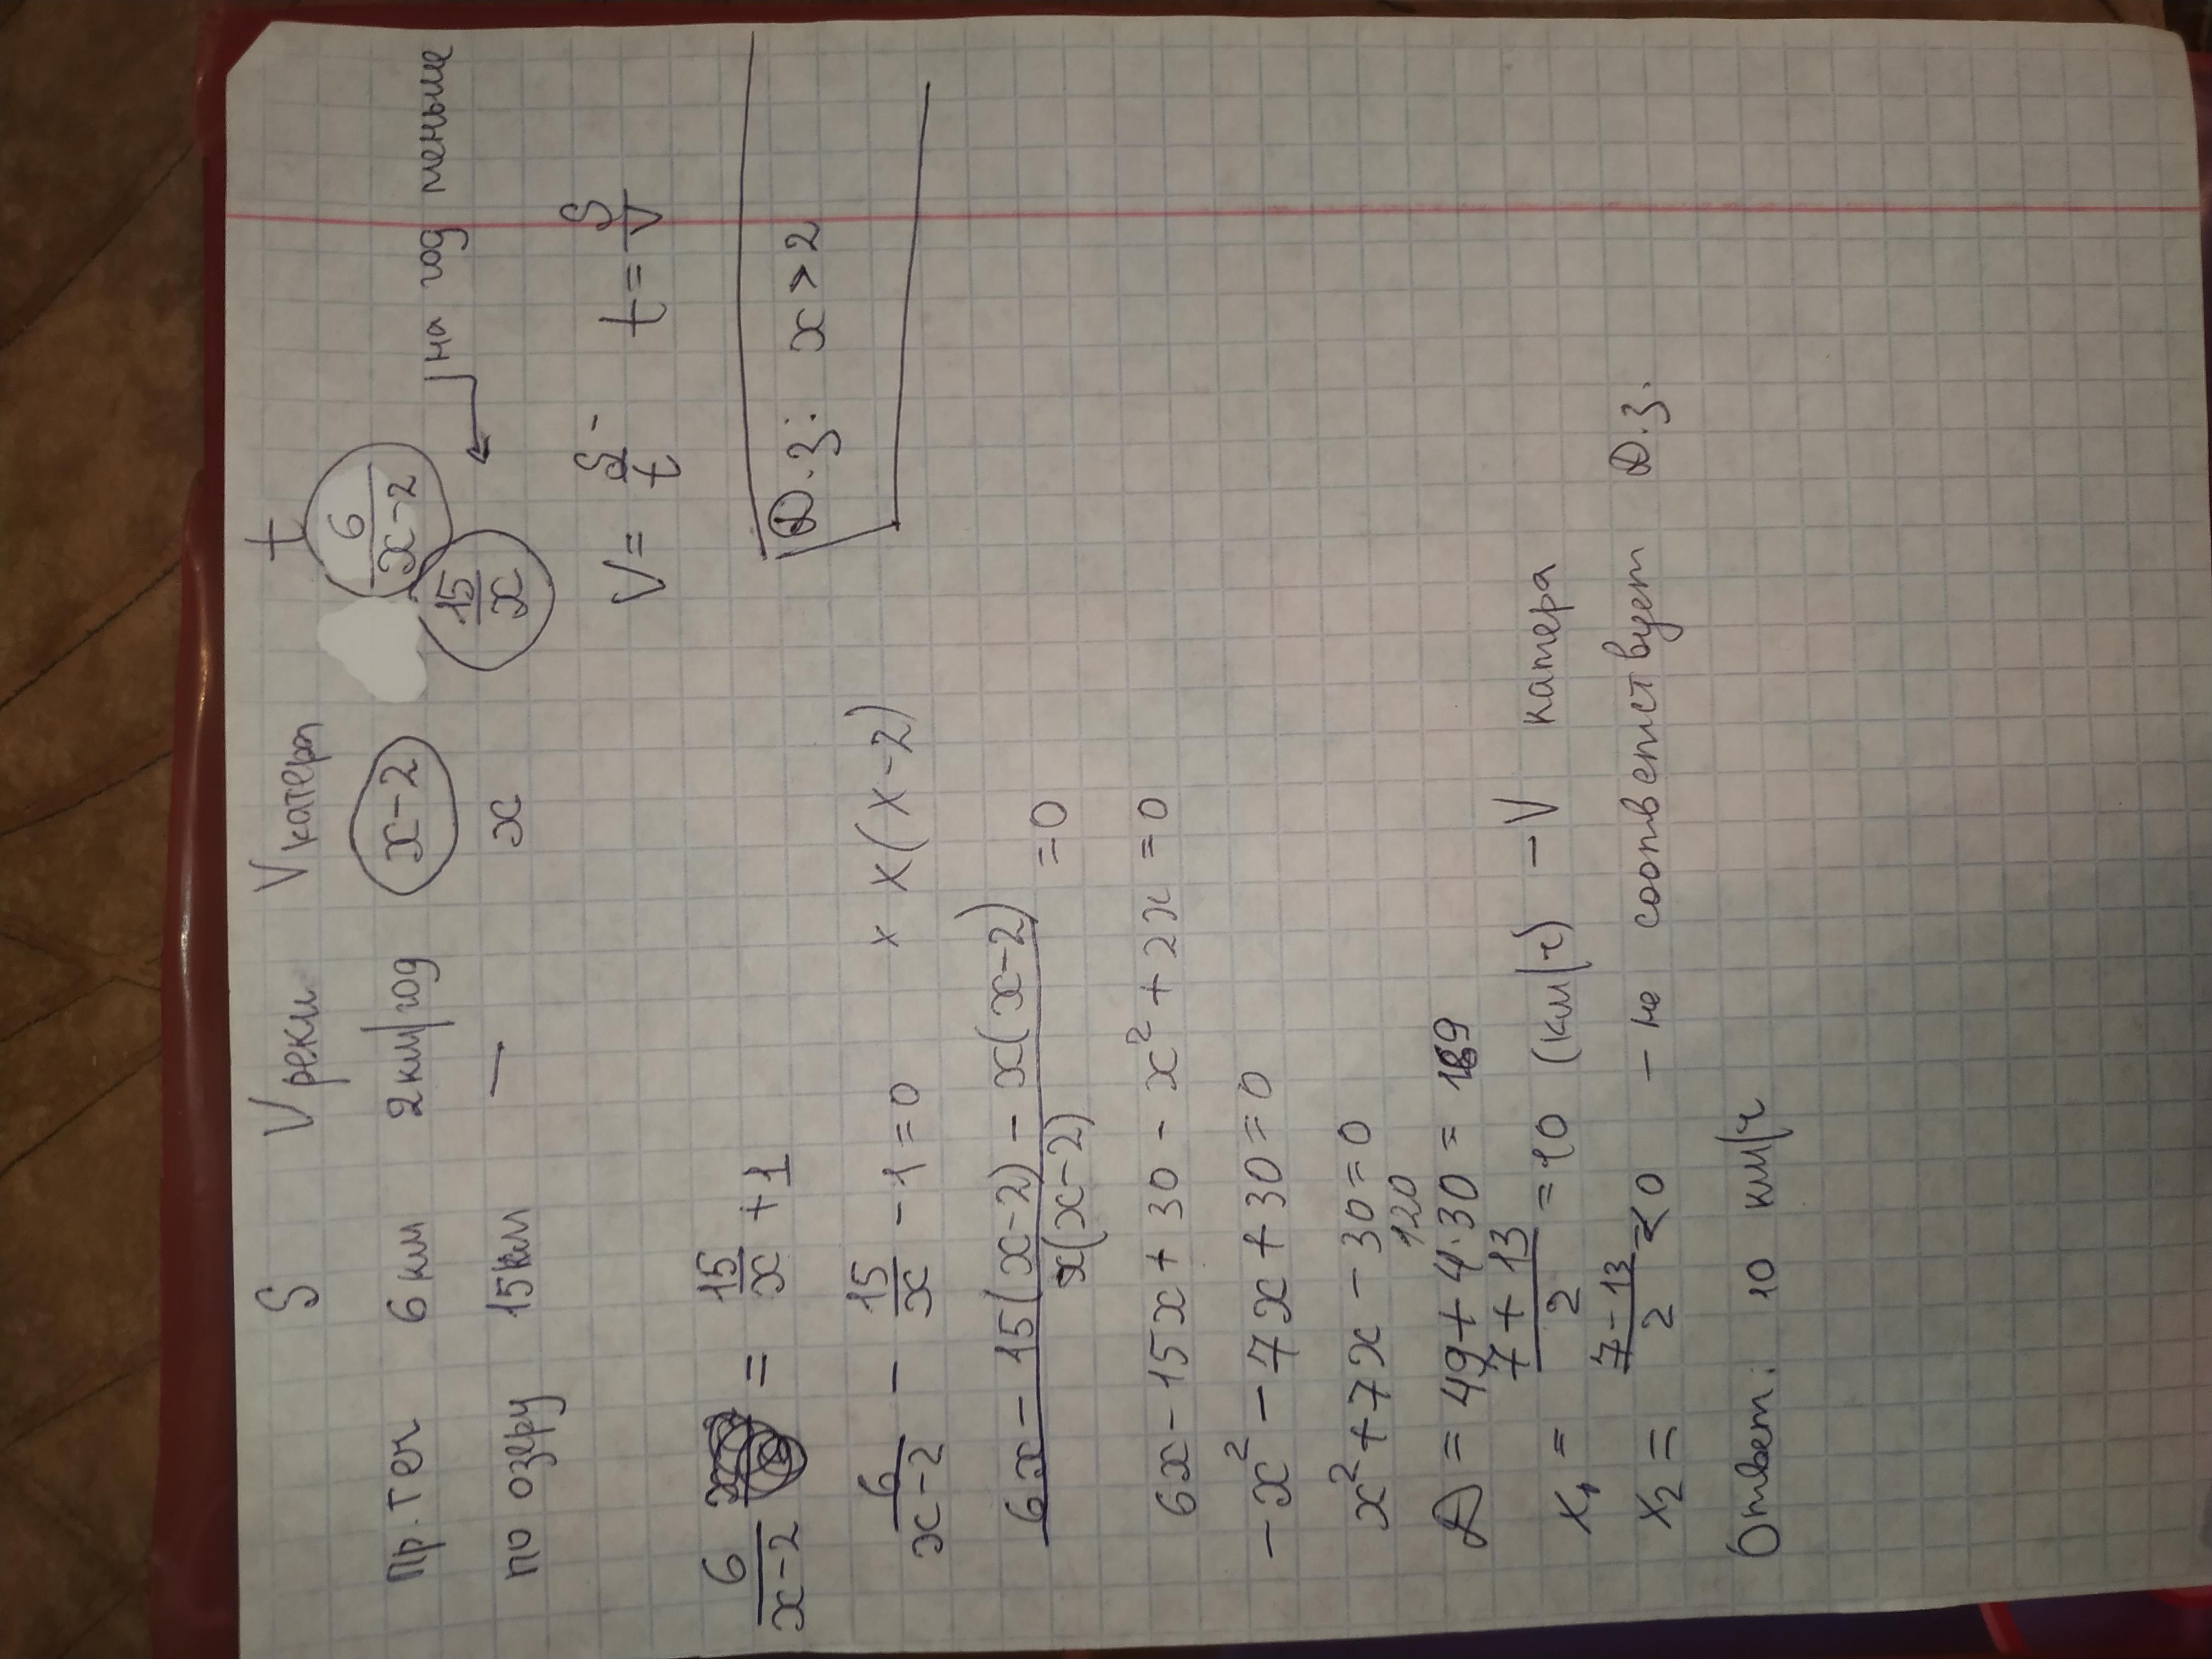 S V реки V катера t
пр. теч 6 км 2 км/год x-2 6/(x-2)
на год меньше
по озеру 15 км — x 15/x
V = S/t - t = S/V
6/(x-2) = 15/x + 1
D.З: x > 2
6/(x-2) - 15/x - 1 = 0 x x(x-2)
(6x - 15(x-2) - x(x-2))/(x(x-2)) = 0
6x - 15x + 30 - x² + 2x = 0
-x² - 7x + 30 = 0
x² + 7x - 30 = 0
120
D = 49 + 4·30 = 169
x₁ = (7+13)/2 = 10 (км/ч) - V катера
x₂ = (7-13)/2 < 0 - не соответствует D.З.
Ответ: 10 км/ч